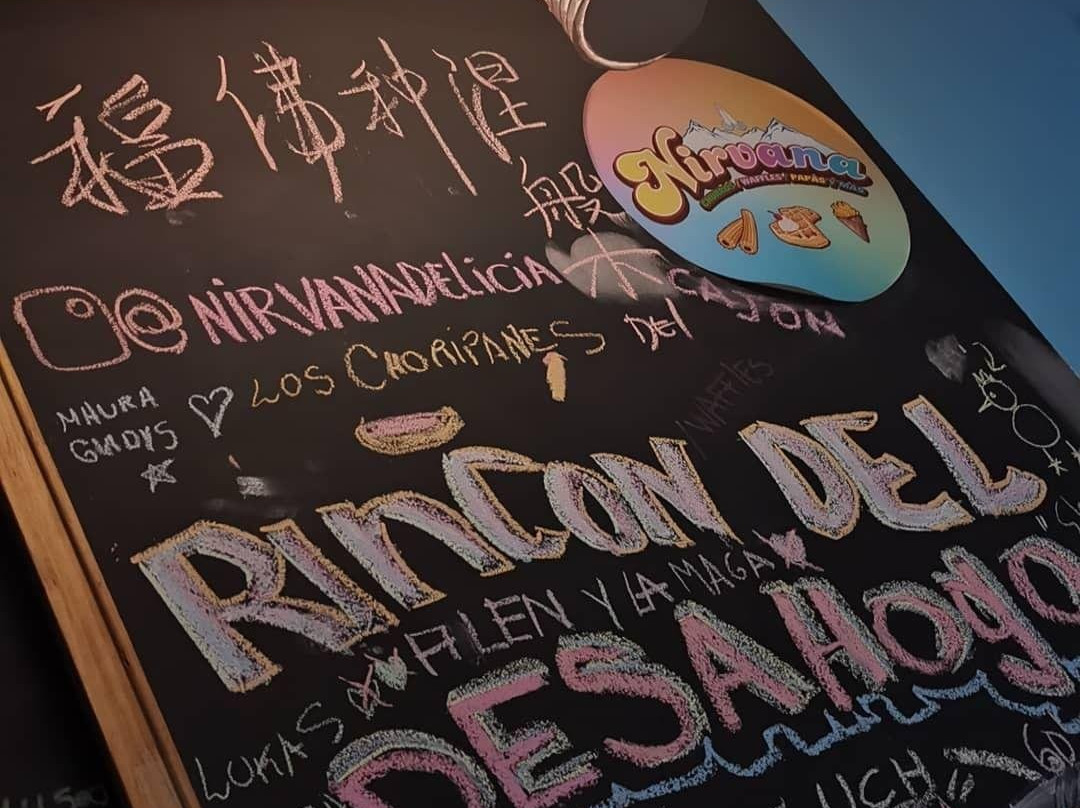 福 佛 种 涅
般
Nirvana
WAFFLES PAPAS Y MÁS
@NIRVANADELiCiA 木
LOS CHORIPANES DEL CAJON
MAURA
GLADYS
WAFFLES
RINCON DEL
AILEN Y LA MAGA
DESAHOgO
LUKAS